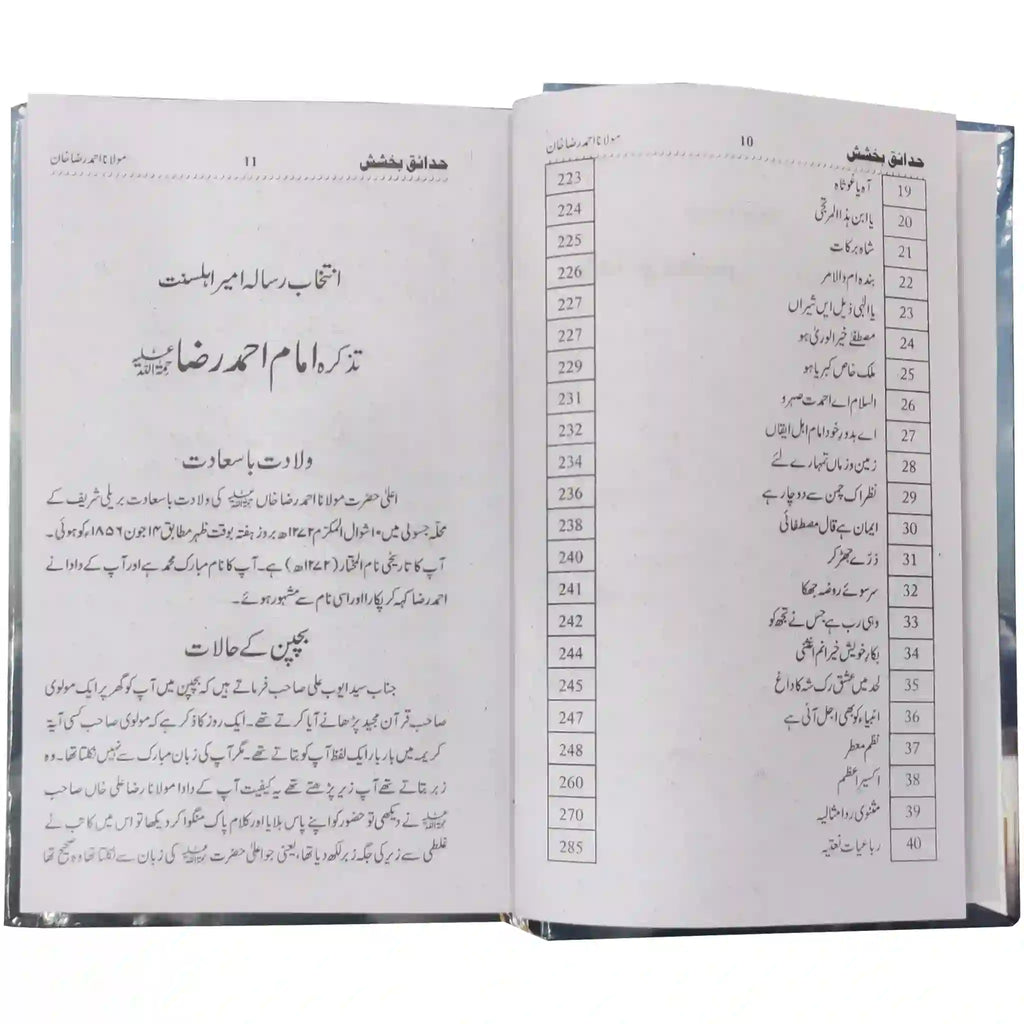 حدائق بخشش 10 مولانا احمد رضا خان
19 آہ یا غوثاہ 223
20 یا ابن ہذا المرتجٰی 224
21 شاہ برکات 225
22 بندہ ام والامر 226
23 یا الٰہی ذیل ایں شیراں 227
24 مصطفےٰ خیر الوریٰ ہو 227
25 ملک خاص کبریا ہو 229
26 السلام اے احمدت صہر و 231
27 اے بدورِ خود امام اہل ایقاں 232
28 زمین و زماں تمہارے لئے 234
29 نظر اک چمن سے دو چار ہے 236
30 ایمان ہے قال مصطفائی 238
31 ذرّے جھڑ کر 240
32 سر سوئے روضہ جھکا 241
33 وہی رب ہے جس نے تجھ کو 242
34 بکارِ خویش خیرانم اغثنی 244
35 لحد میں عشق رخ شہ کا داغ 245
36 انبیاء کو بھی اجل آنی ہے 247
37 نظم معطر 248
38 اکسیر اعظم 260
39 مثنوی رد امثالیہ 270
40 رباعیات نعتیہ 285
حدائق بخشش 11 مولانا احمد رضا خان
انتخاب رسالہ امیر اہلسنت
تذکرہ امام احمد رضا رحمۃ اللہ علیہ
ولادت باسعادت
اعلیٰ حضرت مولانا احمد رضا خاں رحمۃ اللہ علیہ کی ولادت باسعادت بریلی شریف کے
محلّہ جسولی میں ۱۰ شوال المکرم ۱۲۷۲ھ بروز ہفتہ بوقت ظہر مطابق ۱۴ جون ۱۸۵۶ء کو ہوئی۔
آپ کا تاریخی نام المختار (۱۲۷۲ھ) ہے۔ آپ کا نام مبارک محمد ہے اور آپ کے دادا نے
احمد رضا کہہ کر پکارا اور اسی نام سے مشہور ہوئے۔
بچپن کے حالات
جناب سید ایوب علی صاحب فرماتے ہیں کہ بچپن میں آپ کو گھر پر ایک مولوی
صاحب قرآن مجید پڑھانے آیا کرتے تھے۔ ایک روز کا ذکر ہے کہ مولوی صاحب کسی آیۂ
کریمہ میں بار بار ایک لفظ آپ کو بتاتے تھے۔ مگر آپ کی زبان مبارک سے نہیں نکلتا تھا۔ وہ
زبر بتاتے تھے آپ زیر پڑھتے تھے یہ کیفیت آپ کے دادا مولانا رضا علی خاں صاحب
رحمۃ اللہ علیہ نے دیکھی تو حضور کو اپنے پاس بلایا اور کلام پاک منگوا کر دیکھا تو اس میں کاتب نے
غلطی سے زیر کی جگہ زبر لکھ دیا تھا، یعنی جو اعلیٰ حضرت رحمۃ اللہ علیہ کی زبان سے نکلتا تھا وہ صحیح تھا